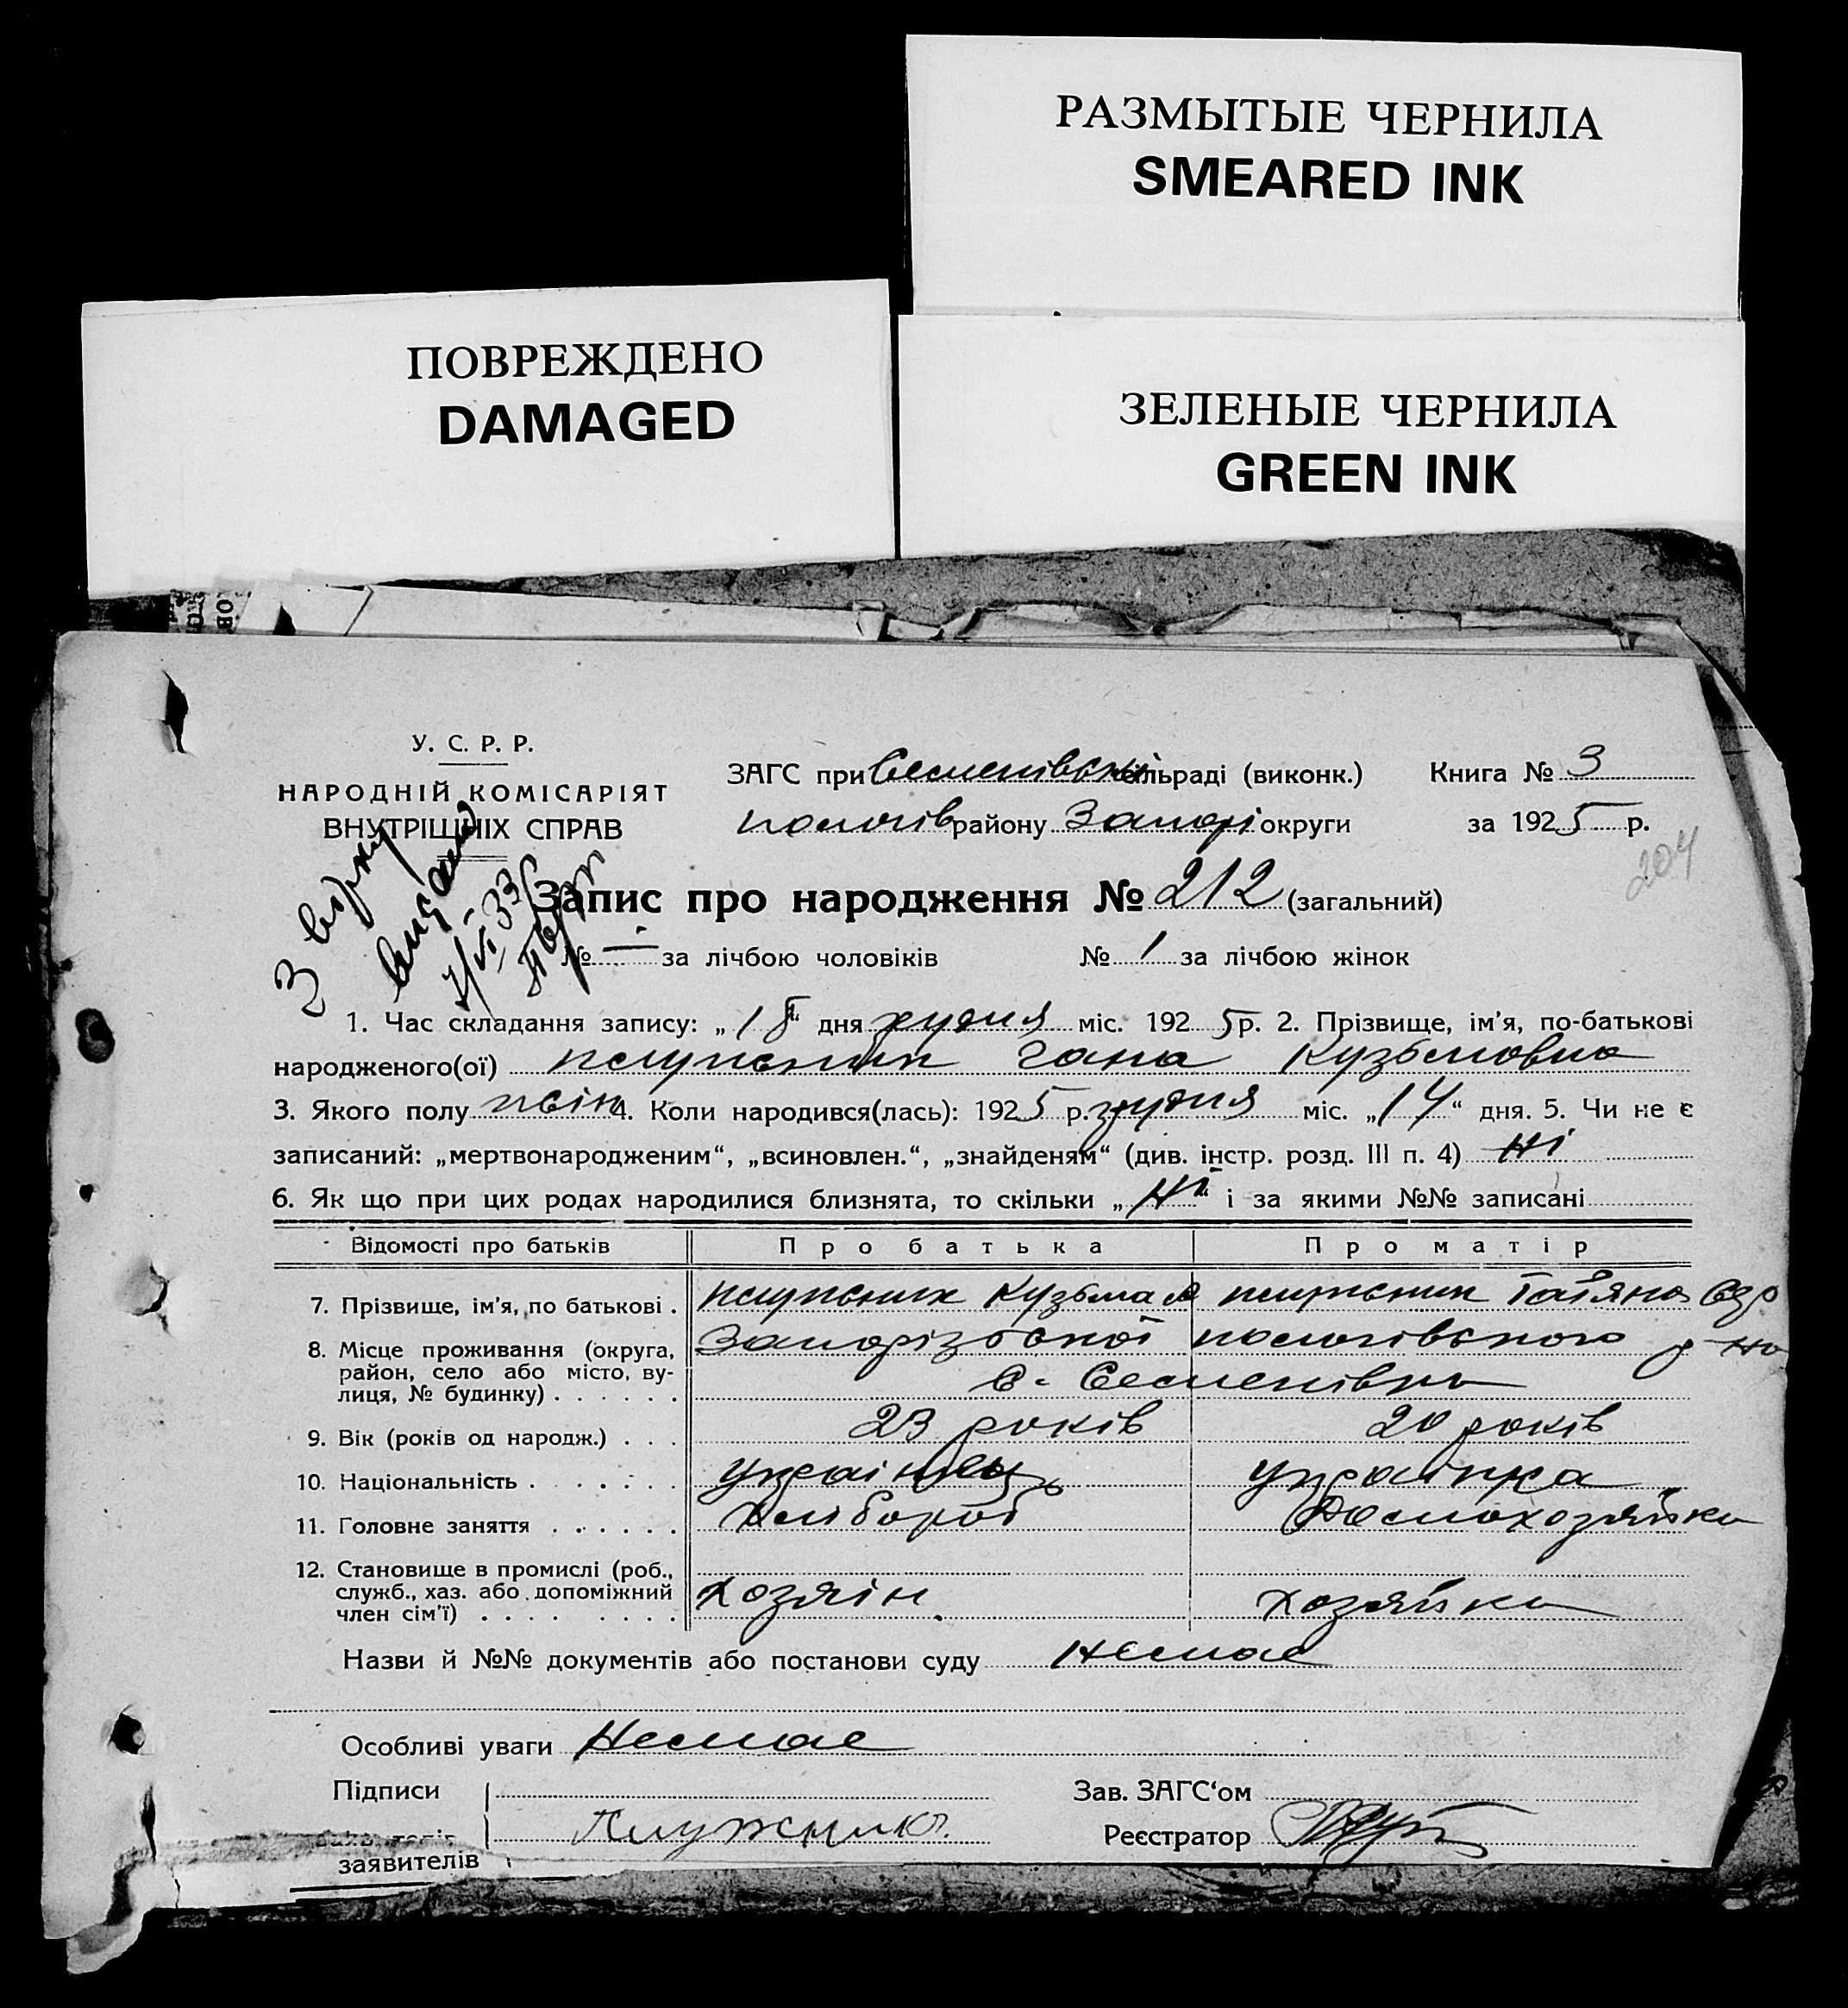 РАЗМЫТЫЕ ЧЕРНИЛА
SMEARED INK
ПОВРЕЖДЕНО
DAMAGED
ЗЕЛЕНЫЕ ЧЕРНИЛА
GREEN INK
У. С. Р. Р.
НАРОДНІЙ КОМІСАРІЯТ
ВНУТРІШНІХ СПРАВ
ЗАГС при Семенівській сільраді (виконк.) Книга № 3
пологів району Запорі округи за 1925 р.
204
Запис про народження № 212 (загальний)
№ — за лічбою чоловіків № 1 за лічбою жінок
1. Час складання запису: „18“ дня грудня міс. 1925 р. 2. Прізвище, ім'я, по-батькові
народженого(ої) плужник Гана Кузьмовна
3. Якого полу жін 4. Коли народився(лась): 1925 р. грудня міс. „14“ дня. 5. Чи не є
записаний: „мертвонародженим“, „всиновлен.“, „знайденям“ (див. інстр. розд. III п. 4) ні
6. Як що при цих родах народилися близнята, то скільки „ні“ і за якими №№ записані
Відомості про батьків Про батька Про матір
7. Прізвище, ім'я, по батькові . плужник Кузьма плужник Татяна
8. Місце проживання (округа, Запорізської пологівського р-на
район, село або місто, ву-
лиця, № будинку) . . . . . . с. Семенівка
9. Вік (років од народж.) . . . 23 років 20 років
10. Національність . . . . . . . українець українка
11. Головне заняття . . . . . . хлібороб Домохозяйка
12. Становище в промислі (роб.,
служб., хаз. або допоміжний хозяін. хозяйка
член сім'ї) . . . . . . . . .
Назви й №№ документів або постанови суду немае
Особливі уваги Немае
Підписи Зав. ЗАГС‘ом
Плужник Реєстратор
заявителів